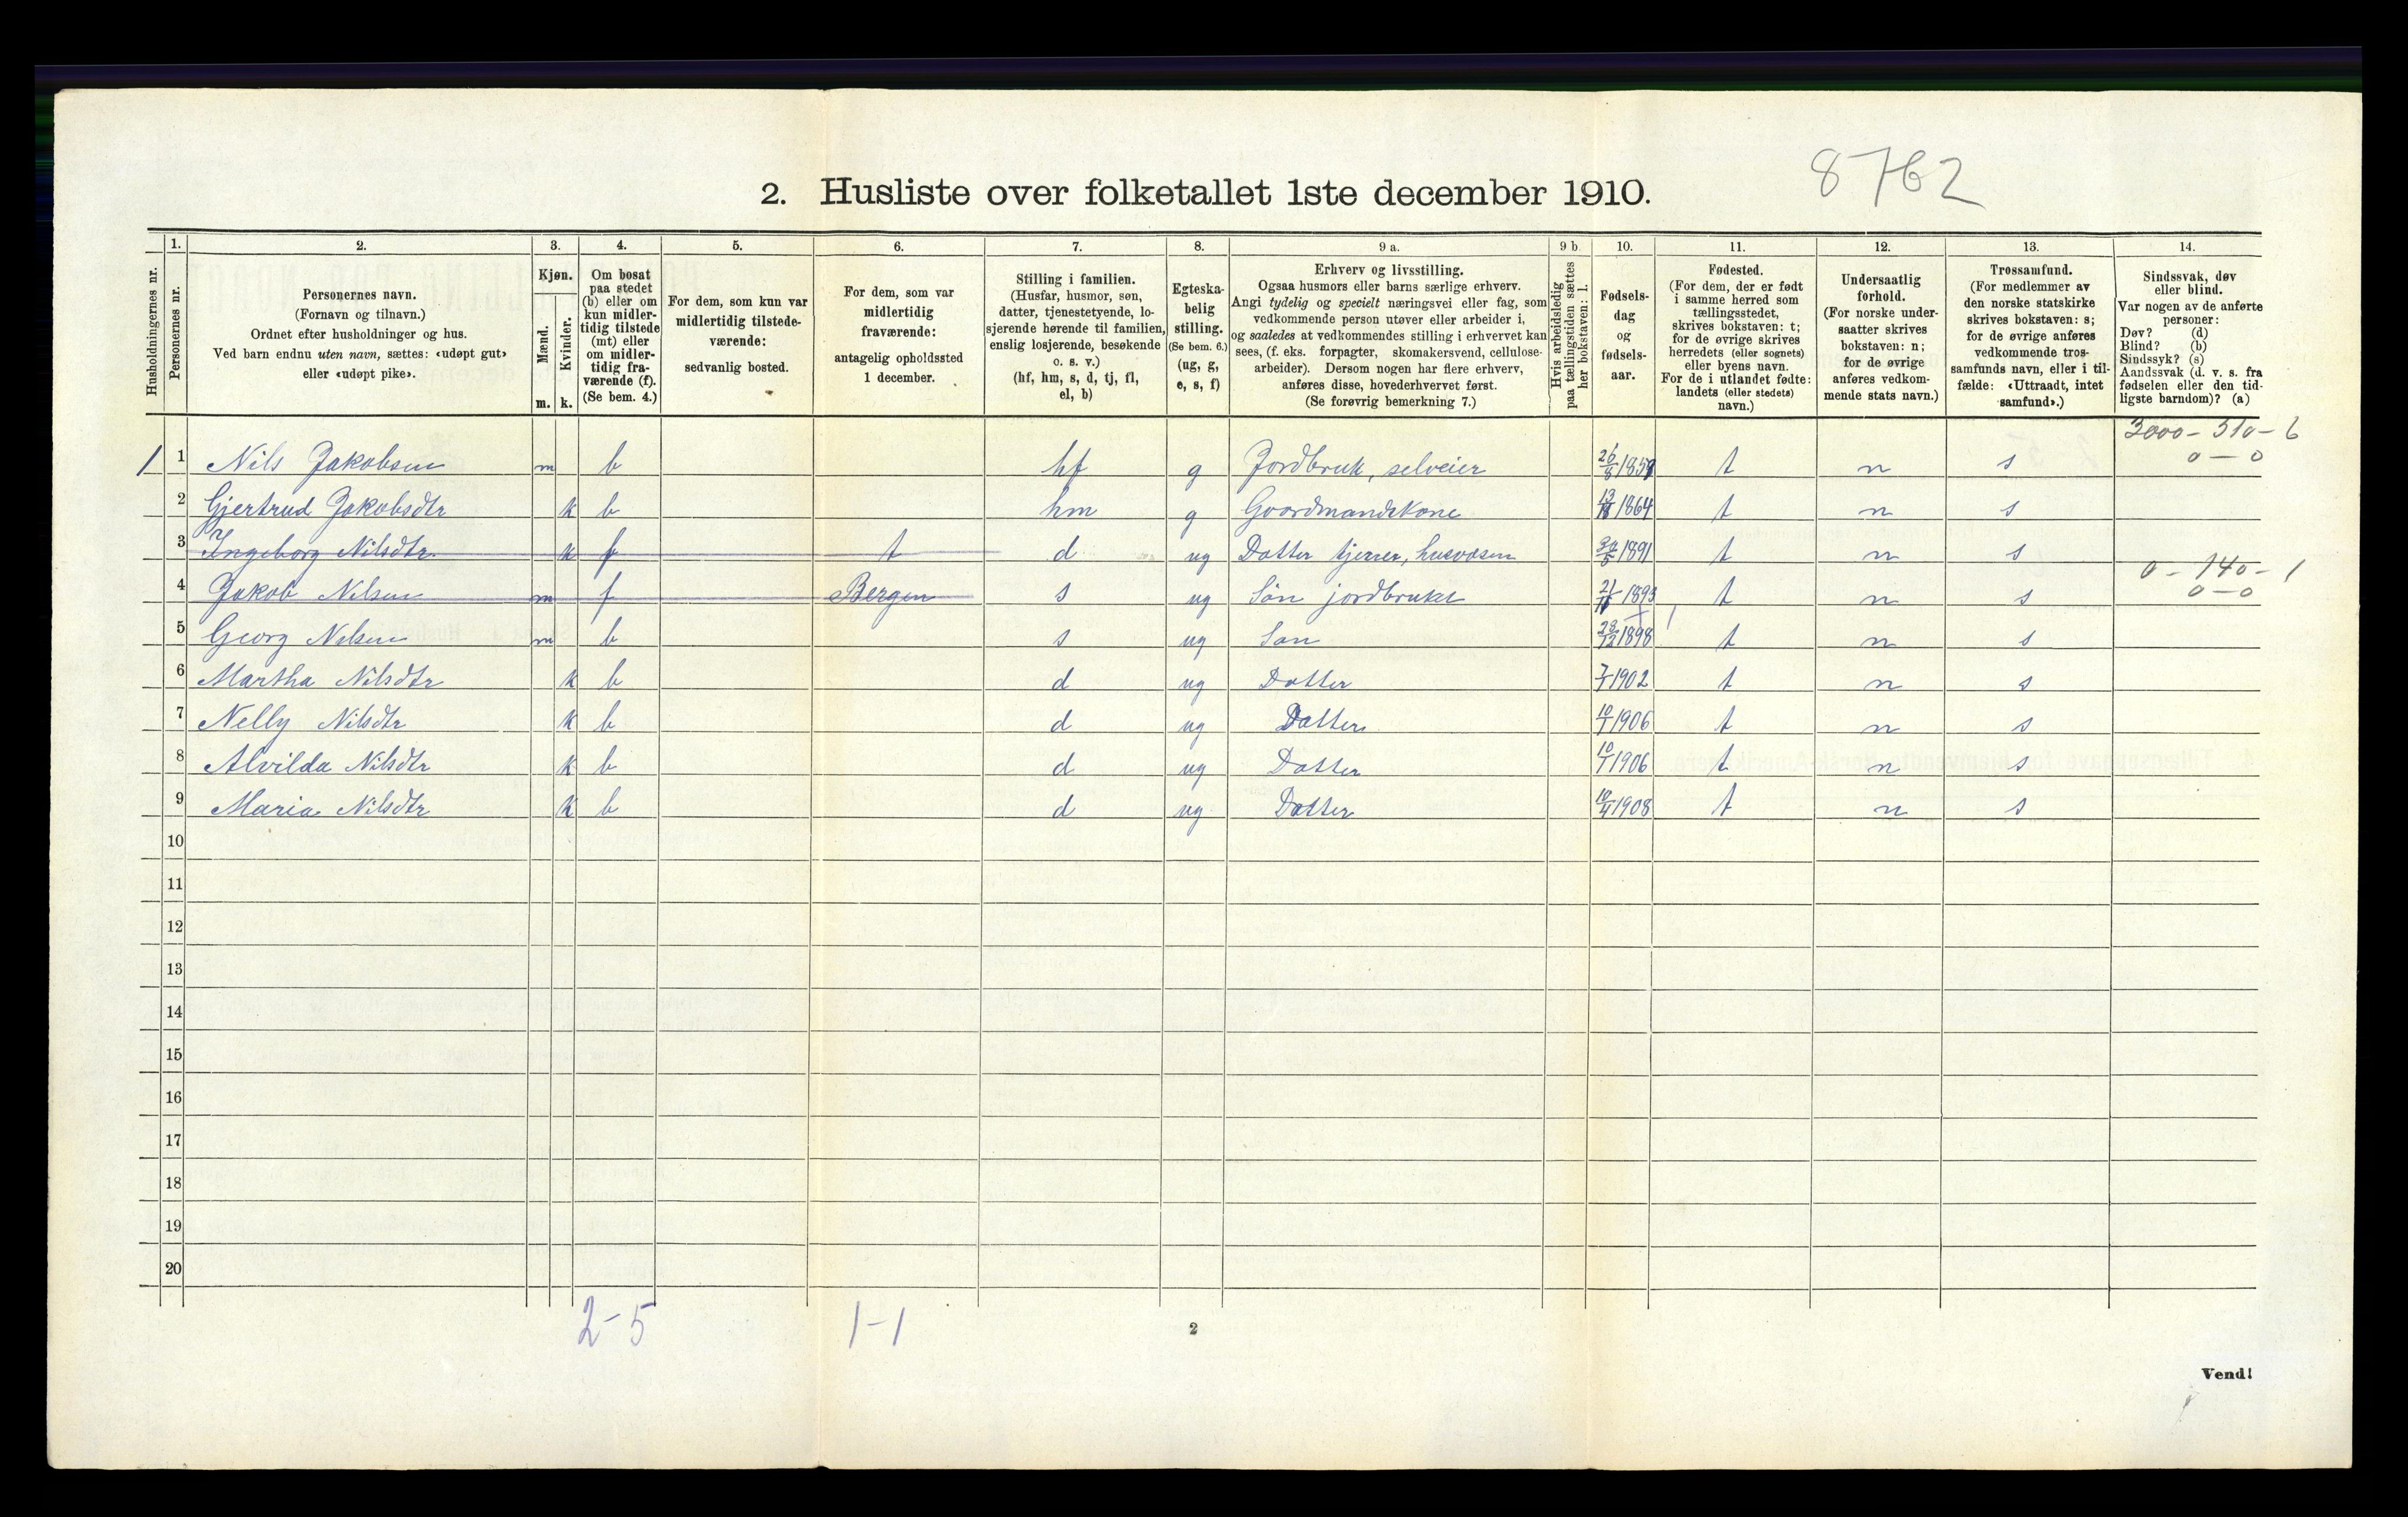 8762
2. Husliste over folketallet 1ste december 1910.
Husholdningernes nr.
1. Personernes nr.
2. Personernes navn.
(Fornavn og tilnavn.)
Ordnet efter husholdninger og hus.
Ved barn endnu uten navn, sættes: «udøpt gut»
eller «udøpt pike».
3. Kjøn.
Mænd. m.
Kvinder. k.
4. Om bosat
paa stedet
(b) eller om
kun midler-
tidig tilstede
(mt) eller
om midler-
tidig fra-
værende (f).
(Se bem. 4.)
5. For dem, som kun var
midlertidig tilstede-
værende:
sedvanlig bosted.
6. For dem, som var
midlertidig
fraværende:
antagelig opholdssted
1 december.
7. Stilling i familien.
(Husfar, husmor, søn,
datter, tjenestetyende, lo-
sjerende hørende til familien,
enslig losjerende, besøkende
o. s. v.)
(hf, hm, s, d, tj, fl,
el, b)
8. Egteska-
belig
stilling.
(Se bem. 6.)
(ug, g,
e, s, f)
9 a. Erhverv og livsstilling.
Ogsaa husmors eller barns særlige erhverv.
Angi tydelig og specielt næringsvei eller fag, som
vedkommende person utøver eller arbeider i,
og saaledes at vedkommendes stilling i erhvervet kan
sees, (f. eks. forpagter, skomakersvend, cellulose-
arbeider). Dersom nogen har flere erhverv,
anføres disse, hovederhvervet først.
(Se forøvrig bemerkning 7.)
9 b. Hvis arbeidsledig
paa tællingstiden sættes
her bokstaven: l.
10. Fødsels-
dag
og
fødsels-
aar.
11. Fødested.
(For dem, der er født
i samme herred som
tællingsstedet,
skrives bokstaven: t;
for de øvrige skrives
herredets (eller sognets)
eller byens navn.
For de i utlandet fødte:
landets (eller stedets)
navn.)
12. Undersaatlig
forhold.
(For norske under-
saatter skrives
bokstaven: n;
for de øvrige
anføres vedkom-
mende stats navn.)
13. Trossamfund.
(For medlemmer av
den norske statskirke
skrives bokstaven: s;
for de øvrige anføres
vedkommende tros-
samfunds navn, eller i til-
fælde: «Uttraadt, intet
samfund».)
14. Sindssvak, døv
eller blind.
Var nogen av de anførte
personer:
Døv? (d)
Blind? (b)
Sindssyk? (s)
Aandssvak (d. v. s. fra
fødselen eller den tid-
ligste barndom)? (a)
3000 - 510 - 6
0 - 0
1 1 Nils Jakobsen m b hf g Jordbruk, selveier 26/8 t n s
2 Gjertrud Jakobsdtr k b hm g Gaardmandskone 1864 t n s
3 Ingeborg Nilsdtr. k f t d ug Datter tjener, husvæsen 1891 t n s
0 - 140 - 1
0 - 0
4 Jakob Nilsen m f Bergen s ug Sön jordbruket 1893 t n s
5 Georg Nilsen m b s ug Sön 28/12 1898 t n s
6 Martha Nilsdtr k b d ug Datter 7/1 1902 t n s
7 Nelly Nilsdtr k b d ug Datter 10/1 1906 t n s
8 Alvilda Nilsdtr k b d ug Datter 10/1 1906 t n s
9 Maria Nilsdtr k b d ug Datter 10/4 1908 t n s
10
11
12
13
14
15
16
17
18
19
20
2-5 1-1
2
Vend!